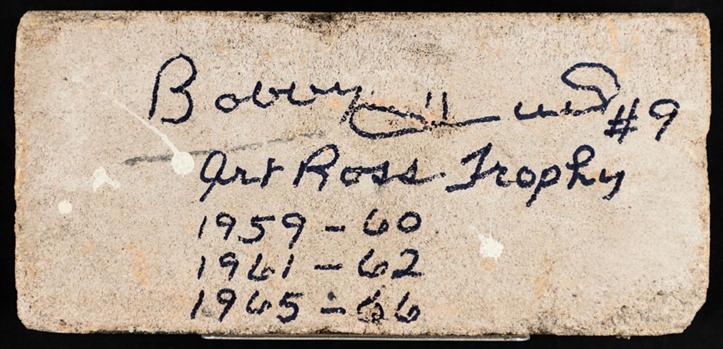 Bobby Hull #9
Art Ross Trophy
1959-60
1961-62
1965-66